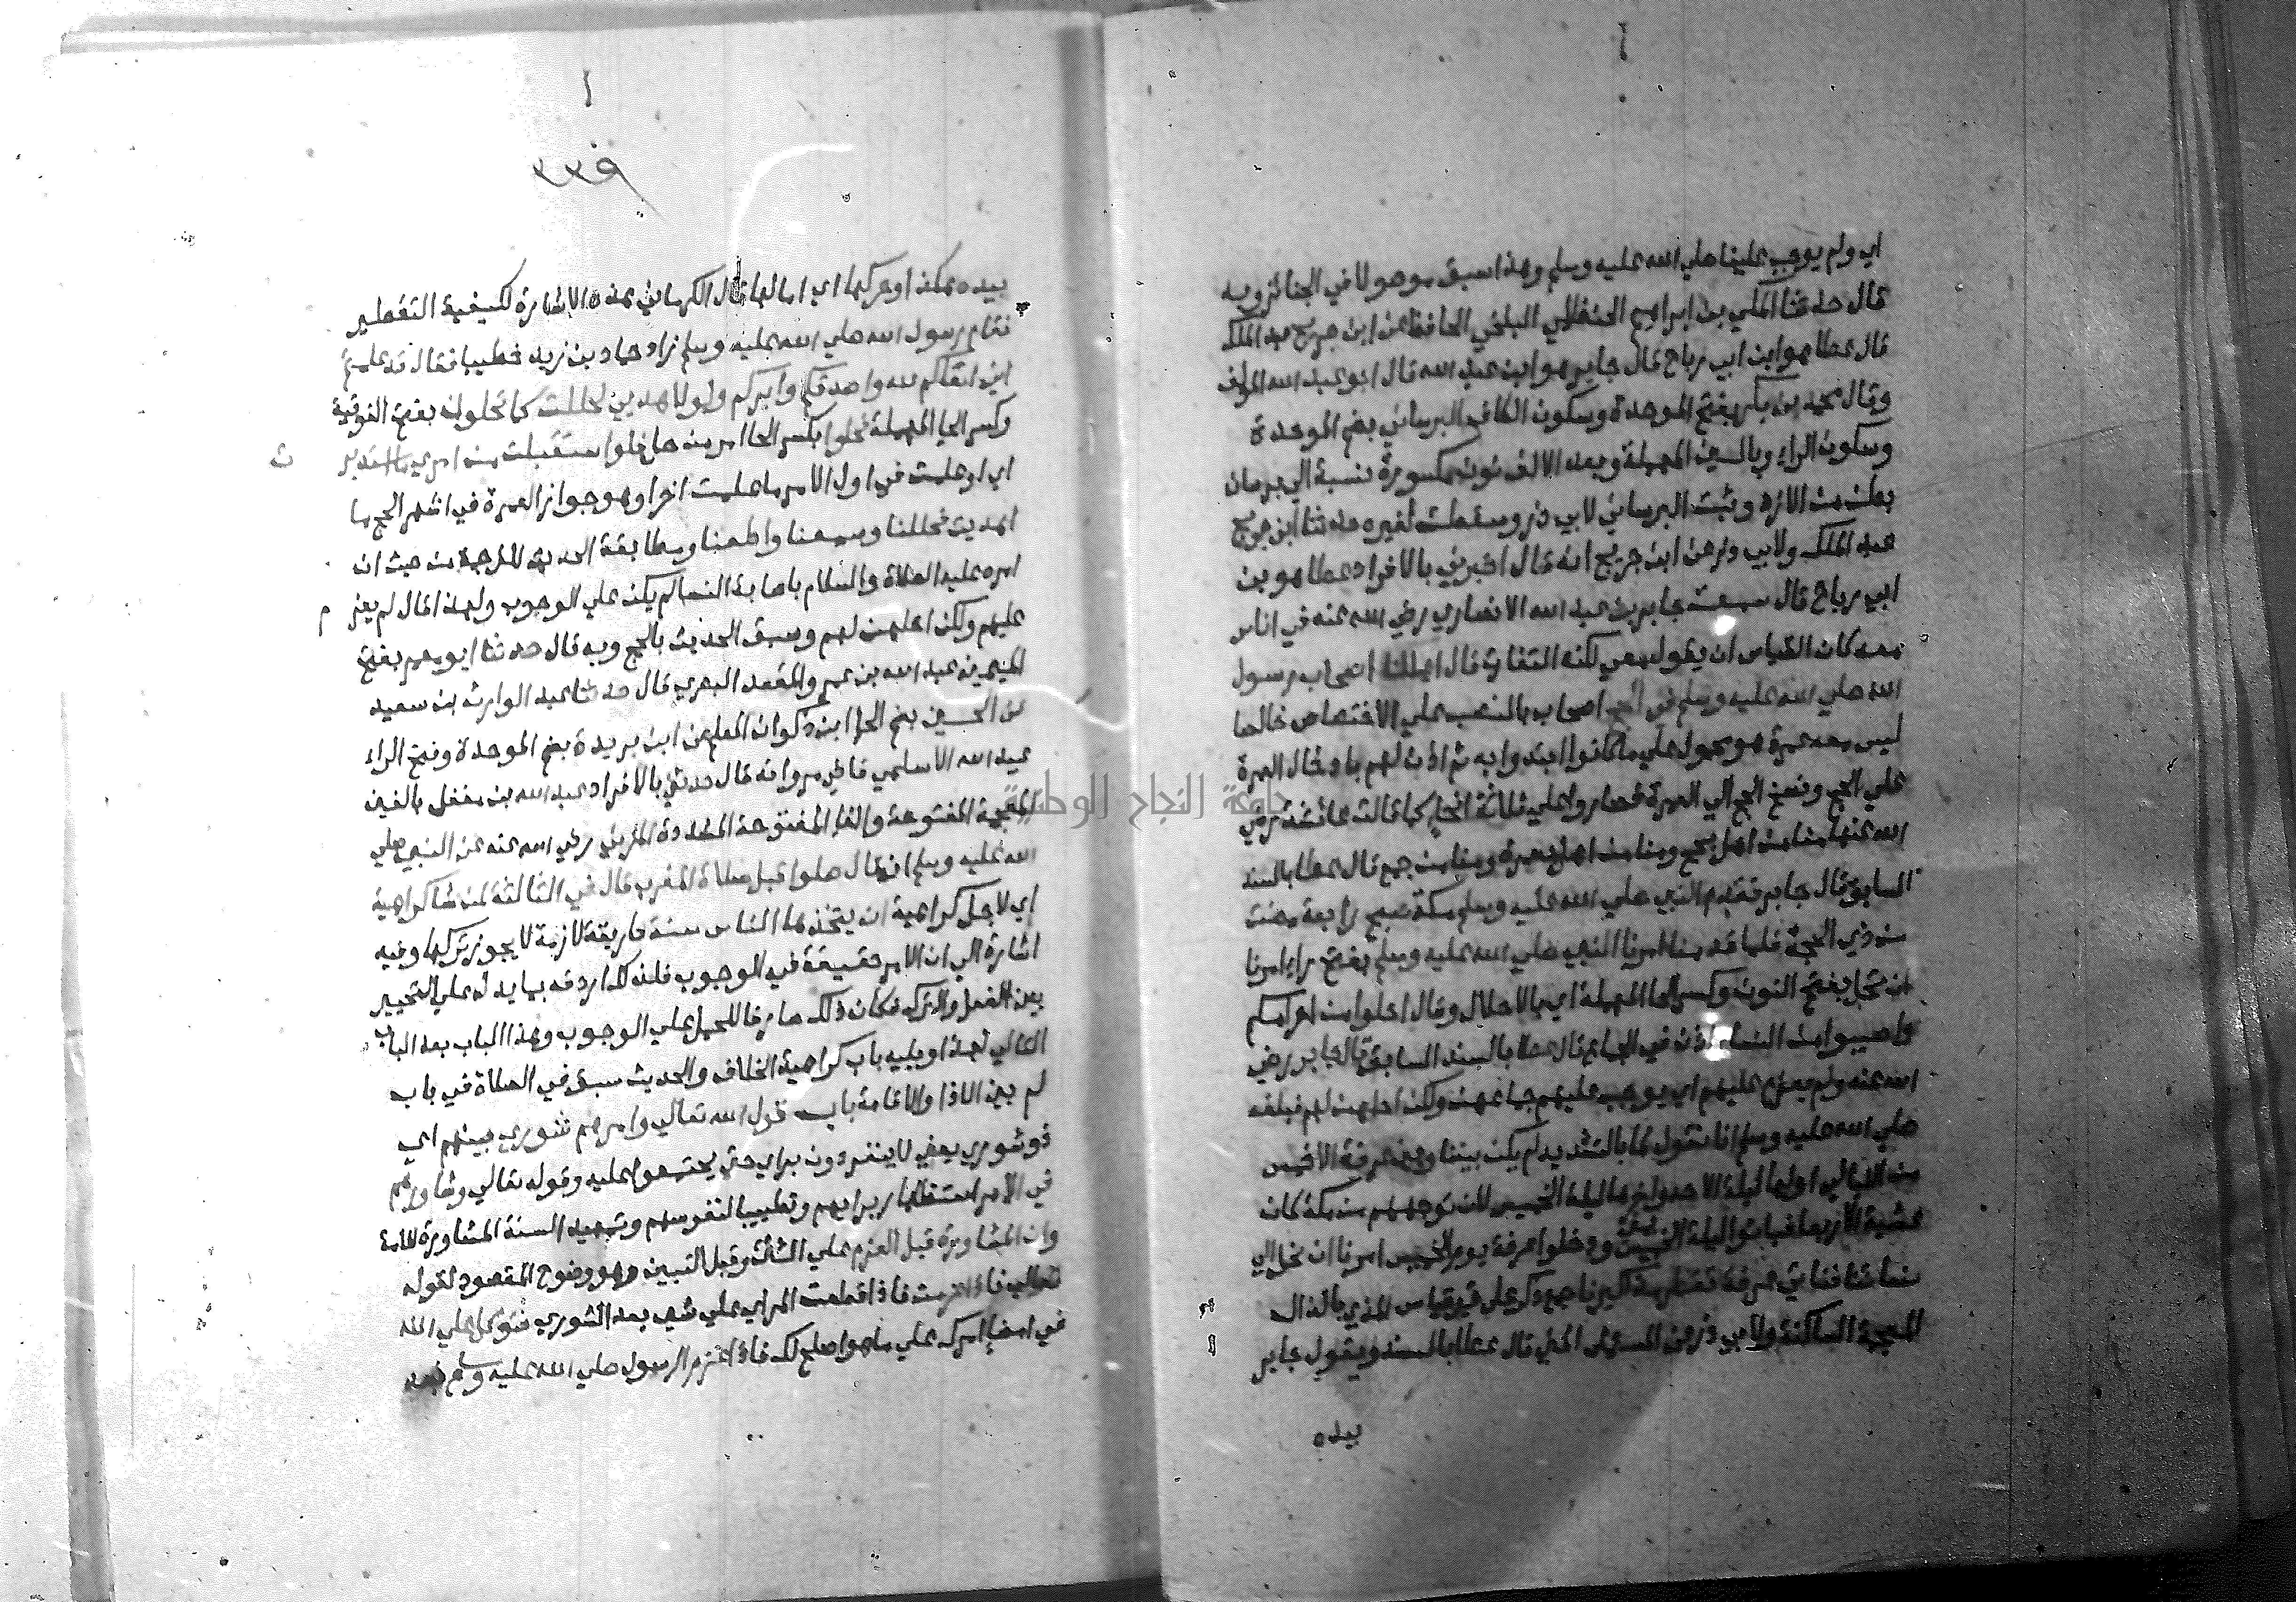 اي ولم يوجب علينا صلي الله عليه وسلم وهذا سبق موصولا في الجنائز وبه
قال حدثنا المكي بن ابراهيم الحنظلي البلخي الحافظ عن ابن جريج عبد الملك
قال عطا هو ابن ابي رباح قال جابر هو ابن عبد الله قال ابو عبد الله المولف
وقال محمد بن بكر بفتح الموحدة وسكون الكاف البرساني بضم الموحدة
وسكون الراء وبالسين المهملة وبعد الالف نون مكسورة نسبة الي برسان
بطن من الازد وثبت البرساني لابي ذر وسقطت لغيره حدثنا ابن جريج
عبد الملك ولابي ذر عن ابن جريج انه قال اخبرني بالافراد عطا هو بن
ابي رباح قال سمعت جابر بن عبد الله الانصاري رضي الله عنه في اناس
معه كان القياس ان يقول معي لكنه التفات قال اهللنا اصحاب رسول
الله صلي الله عليه وسلم في الحج اصحاب بالنصب علي الاختصاص خالصا
ليس معه عمرة هو محمول علي ما كانوا ابتدوا به ثم اذن لهم بادخال العمرة
علي الحج وفسخ الحج الي العمرة فصاروا علي ثلاثة انحاء كما قالت عائشة رضي
الله عنها منا من اهل بحج ومنا من اهل بعمرة ومنا من جمع قال عطا بالسند
السابق قال جابر فقدم النبي صلي الله عليه وسلم مكة صبح رابعة مضت
من ذي الحجة فلما قدمنا امرنا النبي صلي الله عليه وسلم بفتح راء امرنا
ان نحل بفتح النون وكسر الحا المهملة اي بالاحلال وقال احلوا من احرامكم
واصيبوا من النساء اذن في الجماع قال عطا بالسند السابق قال جابر رضي
الله عنه ولم يعزم عليهم اي يوجب عليهم جماعهن ولكن احلهن لهم فبلغه
صلي الله عليه وسلم انا نقول لما بالتشديد لم يكن بيننا وبين عرفة الا خمس
من الليالي اولها ليلة الاحد واخرها ليلة الخميس لان توجههم من مكة كان
عشية الاربعا فباتوا ليلة الخميس ودخلوا عرفة يوم الخميس امرنا ان نحل الي
نسائنا فناتي عرفة تقطر مذاكيرنا جمع ذكر علي غير قياس المذي بالذال
المعجمة الساكنة ولابي ذر عن المستملي المني قال عطا بالسند ويقول جابر
بيده
٣٣٩
بيده هكذا وحركها اي امالها قال الكرماني هذه الاشارة لكيفية التقطير
فقام رسول الله صلي الله عليه وسلم زاد حماد بن زيد خطيبا فقال قد علمتم
اني اتقاكم لله واصدقكم وابركم ولولا هديي لحللت كما تحلون بفتح الفوقية
وكسر الحا المهملة فحلوا بكسر الحا امر من حل فلو استقبلت من امري ما استدبرت
اي لو علمت في اول الامر ما علمت اخرا وهو جواز العمرة في اشهر الحج ما
اهديت فحللنا وسمعنا واطعنا ومطابقة الحديث للترجمة من حيث ان
امره عليه الصلاة والسلام باصابة النسا لم يكن علي الوجوب ولهذا قال لم يعزم
عليهم ولكن احلهن لهم وسبق الحديث بالحج وبه قال حدثنا ابو معمر بفتح
الميمين عبد الله بن عمرو المقعد البصري قال حدثنا عبد الوارث بن سعيد
عن الحسين بضم الحا ابن ذكوان المعلم عن ابن بريدة بضم الموحدة وفتح الراء
عبد الله الاسلمي قاضي مرو انه قال حدثني بالافراد عبد الله بن مغفل بالغين
المعجمة المفتوحة والفاء المفتوحة المشددة المزني رضي الله عنه عن النبي صلي
الله عليه وسلم انه قال صلوا قبل صلاة المغرب قال في الثالثة لمن شا كراهية
اي لاجل كراهية ان يتخذها الناس سنة طريقة لازمة لا يجوز تركها وفيه
اشارة الي ان الامر حقيقة في الوجوب فلذلك اردفه بما يدل علي التخيير
بين الفعل والترك فكان ذلك صارفا للحمل علي الوجوب وهذا الباب بعد الباب
التالي لهذا ويليه باب كراهية الخلاف والحديث سبق في الصلاة في باب
لم بين الاذا والاقامة باب قول الله تعالي وامرهم شوري بينهم اي
ذو شوري يعني لا ينفردون براي حتي يجتمعوا عليه وقوله تعالي وشاورهم
في الامر استظهارا برايهم وتطييبا لنفوسهم وتمهيد السنة المشاورة للامة
وان المشاورة قبل العزم علي الشئ وقبل التبين وهو وضوح المقصود لقوله
تعالي فاذا عزمت فاذا قطعت الراي علي شي بعد الشوري فتوكل علي الله
في امضا امرك علي ما هو اصلح لك فاذا عزم الرسول صلي الله عليه وسلم بعد
جامعة النجاح الوطنية